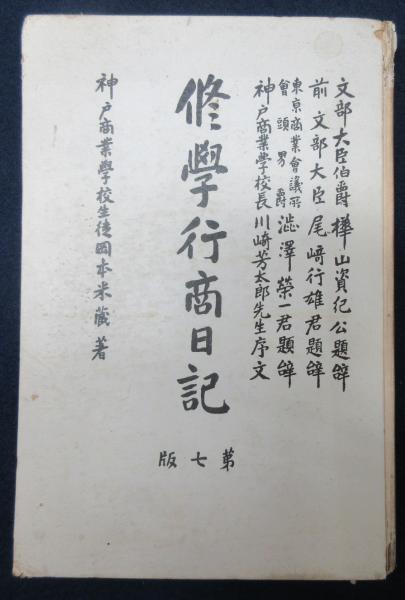 文部大臣伯爵樺山資紀公題辞
前文部大臣尾﨑行雄君題辞
東京商業會議所
會頭男爵
澁澤榮一君題辞
神戸商業学校長川崎芳太郎先生序文
修學行商日記
第七版
神戸商業學校生徒岡本米蔵著